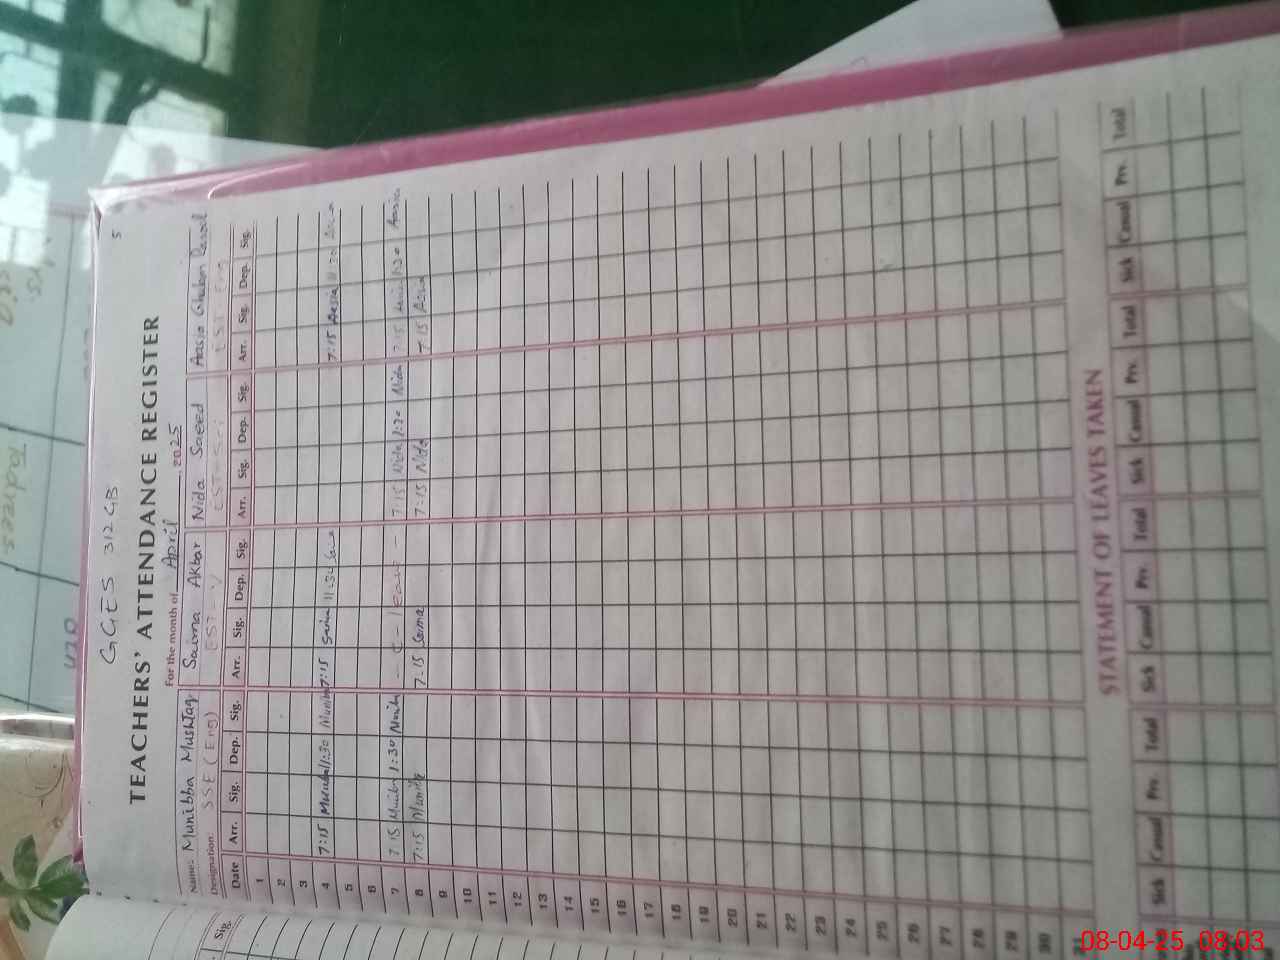 5
GGES 312 GB
TEACHERS' ATTENDANCE REGISTER
For the month of April 2025
Name: Munibba Mushtaq Saima Akbar Nida Saeed Aasia Ghulam Rasool
Designation: SSE (Eng)
Date Arr. Sig. Dep. Sig. Arr. Sig. Dep. Sig. Arr. Sig. Dep. Sig. Arr. Sig. Dep. Sig.
1
2
3
4 7:15 11:30 7:15 Saima 11:30 7:15 Aasia 11:30
5
6
7 7:15 1:30 C - leave 7:15 Nida 1:30 Nida 7:15 1:30 Aasia
8 7:15 7:15 Saima 7:15 Nida 7:15 Aasia
9
10
11
12
13
14
15
16
17
18
19
20
21
22
23
24
25
26
27
28
29
30
31
STATEMENT OF LEAVES TAKEN
Sick Casual Prv. Total Sick Casual Prv. Total Sick Casual Prv. Total Sick Casual Prv. Total
Sig.
08-04-25 08:03